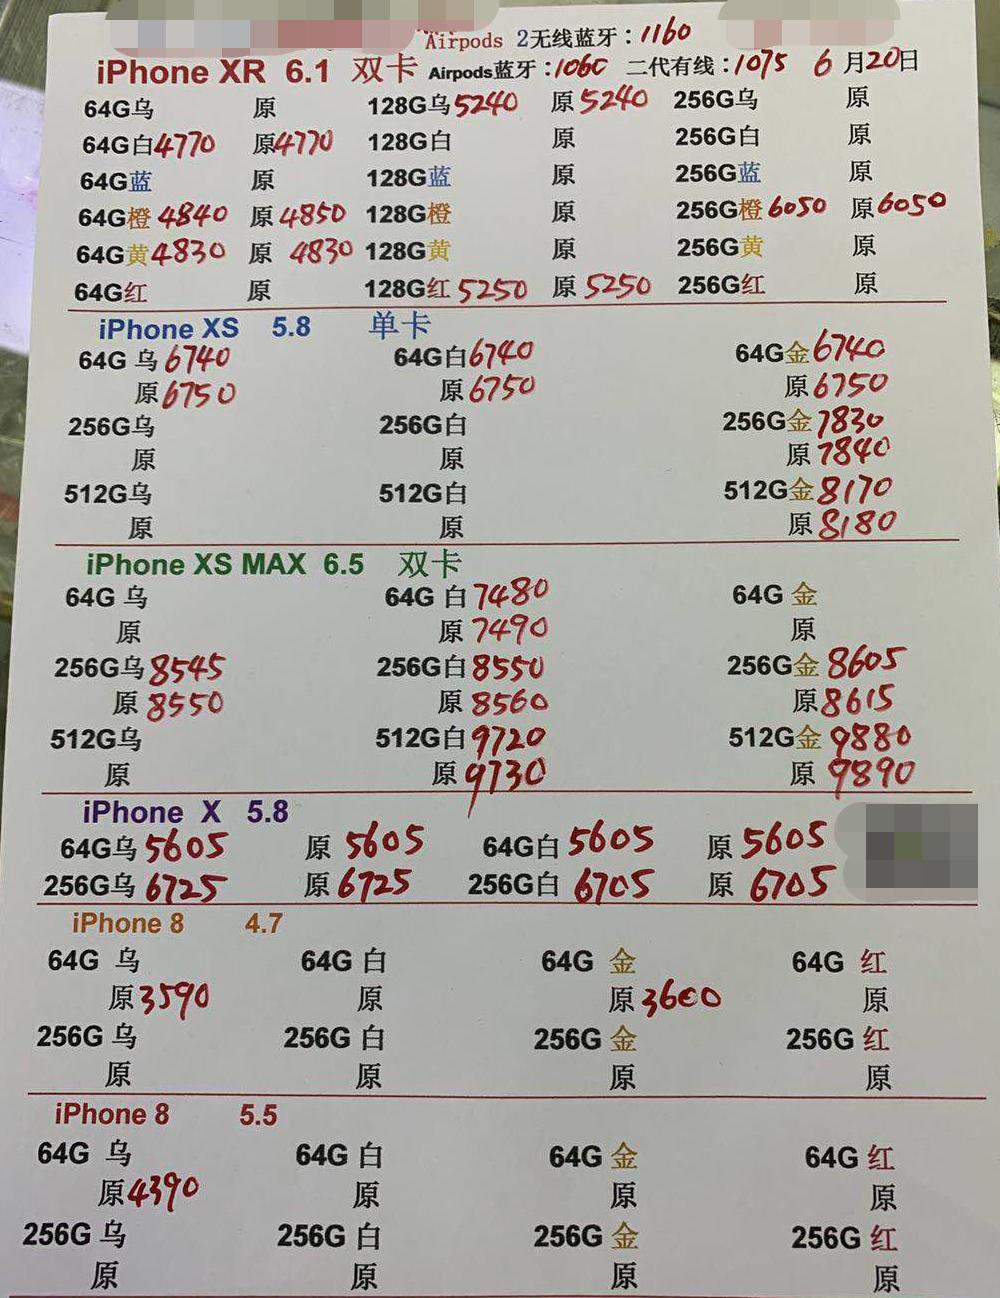 Airpods 2无线蓝牙：1160
iPhone XR 6.1 双卡 Airpods蓝牙：1060 二代有线：1075 6月20日
64G乌 原 128G乌5240 原5240 256G乌 原
64G白4770 原4770 128G白 原 256G白 原
64G蓝 原 128G蓝 原 256G蓝 原
64G橙4840 原4850 128G橙 原 256G橙6050 原6050
64G黄4830 原 4830 128G黄 原 256G黄 原
64G红 原 128G红5250 原5250 256G红 原
iPhone XS 5.8 单卡
64G 乌6740 64G白6740 64G金6740
原6750 原6750 原6750
256G乌 256G白 256G金7830
原 原 原7840
512G乌 512G白 512G金8170
原 原 原8180
iPhone XS MAX 6.5 双卡
64G 乌 64G 白7480 64G 金
原 原7490 原
256G乌8545 256G白8550 256G金8605
原8550 原8560 原8615
512G乌 512G白9720 512G金9880
原 原9730 原 9890
iPhone X 5.8
64G乌5605 原 5605 64G白5605 原5605
256G乌6725 原6725 256G白 6705 原 6705
iPhone 8 4.7
64G 乌 64G 白 64G 金 64G 红
原3590 原 原3600 原
256G 乌 256G 白 256G 金 256G 红
原 原 原 原
iPhone 8 5.5
64G 乌 64G 白 64G 金 64G 红
原4390 原 原 原
256G 乌 256G 白 256G 金 256G 红
原 原 原 原